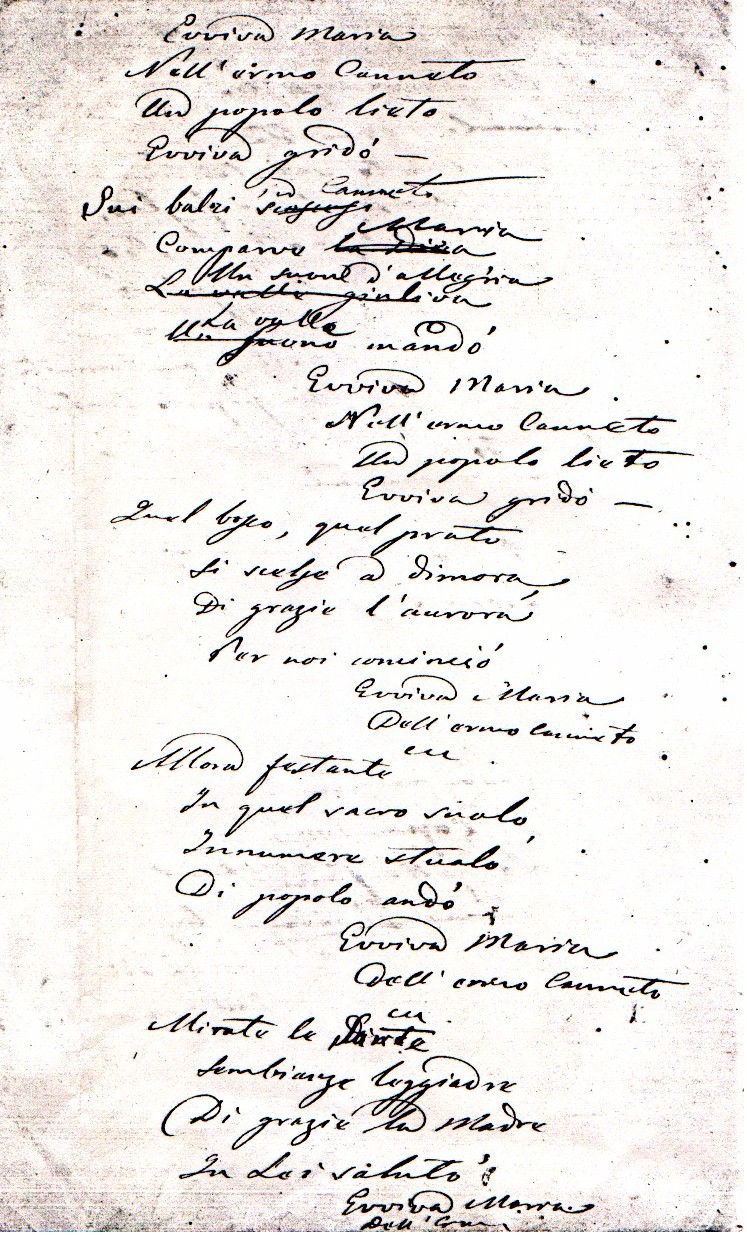 Evviva Maria
Nell'ermo Canneto
Un popolo lieto
Evviva gridó —
di Canneto
Sui balzi
Maria
Comparve la Diva
Un suono d'allegria
La valle giuliva
La valle
Un suono mandó
Evviva Maria
Nell'ermo Canneto
Un popolo lieto
Evviva gridó —
Qual bosco, qual prato
Si scelse a dimora
Di grazie l'aurora
Per noi cominció
Evviva Maria
Dell'ermo Canneto
Allora festante
In quel sacro suolo,
Innumere stuolo
Di popolo andó
Evviva Maria
Dell'ermo Canneto
Mirate le Sante
Sembianze leggiadre
Di grazie la Madre
In Lei salutó
Evviva Maria
Dell'